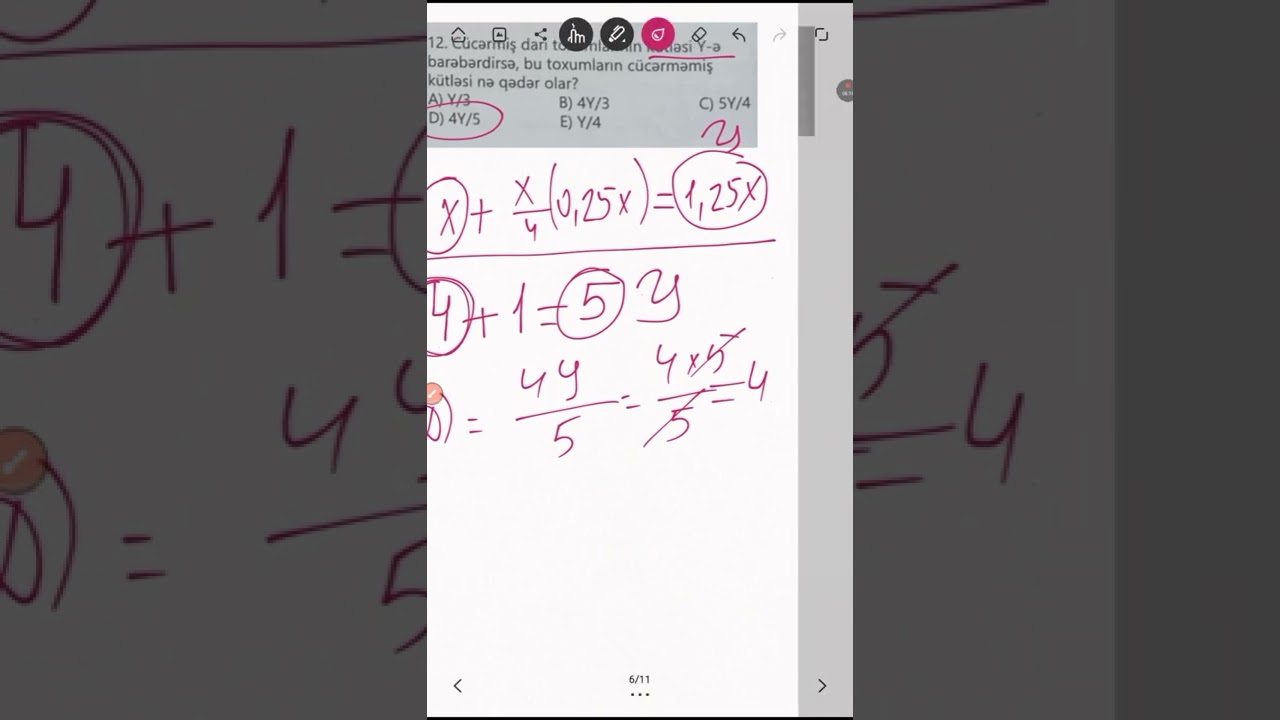 12. Cücərmiş darı toxumlarının kütləsi Y-ə
barəbərdirsə, bu toxumların cücərməmiş
kütləsi nə qədər olar?
A) Y/3 B) 4Y/3 C) 5Y/4
D) 4Y/5 E) Y/4
y
x + x/4 (0,25x) = 1,25x
4 + 1 = 5 y
D) = 4y/5 = 4x5/5 = 4
6/11